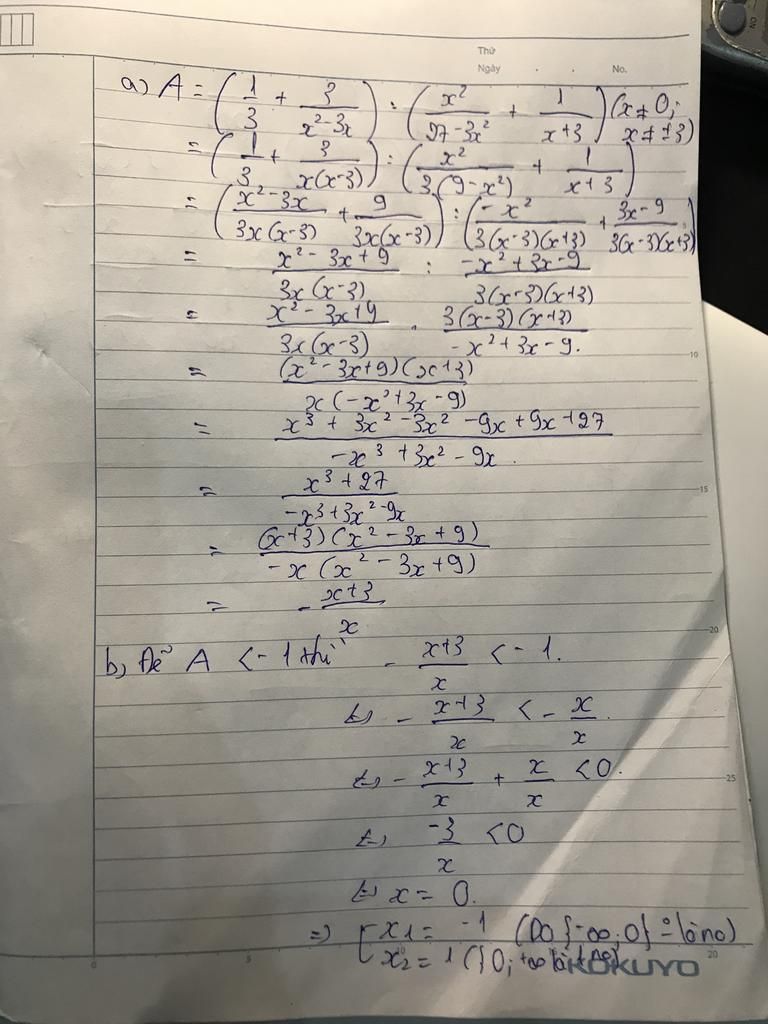 Thứ
Ngày . . No.
a) A = (1/3 + 3/(x²-3x)) : (x²/(27-3x²) + 1/(x+3)) (x≠0; x≠±3)
= (1/3 + 3/(x(x-3))) : (x²/(3(9-x²)) + 1/(x+3))
= ((x²-3x)/(3x(x-3)) + 9/(3x(x-3))) : (-x²/(3(x-3)(x+3)) + (3x-9)/(3(x-3)(x+3)))
= (x²-3x+9)/(3x(x-3)) : (-x²+3x-9)/(3(x-3)(x+3))
= (x²-3x+9)/(3x(x-3)) . (3(x-3)(x+3))/(-x²+3x-9).
10
= ((x²-3x+9)(x+3))/(x(-x²+3x-9))
= (x³+3x²-3x²-9x+9x+27)/(-x³+3x²-9x).
15
= (x³+27)/(-x³+3x²-9x)
= ((x+3)(x²-3x+9))/(-x(x²-3x+9))
= -(x+3)/x
20
b, Để A <-1 thì -(x+3)/x <-1.
⇔ -(x+3)/x < -x/x.
⇔ -(x+3)/x + x/x <0.
25
⇔ -3/x <0
⇔ x = 0.
=> [x1 = -1 (Do }-∞;0}
x2 = 1 (}0; +∞
KOKUYO
0 5 10 20